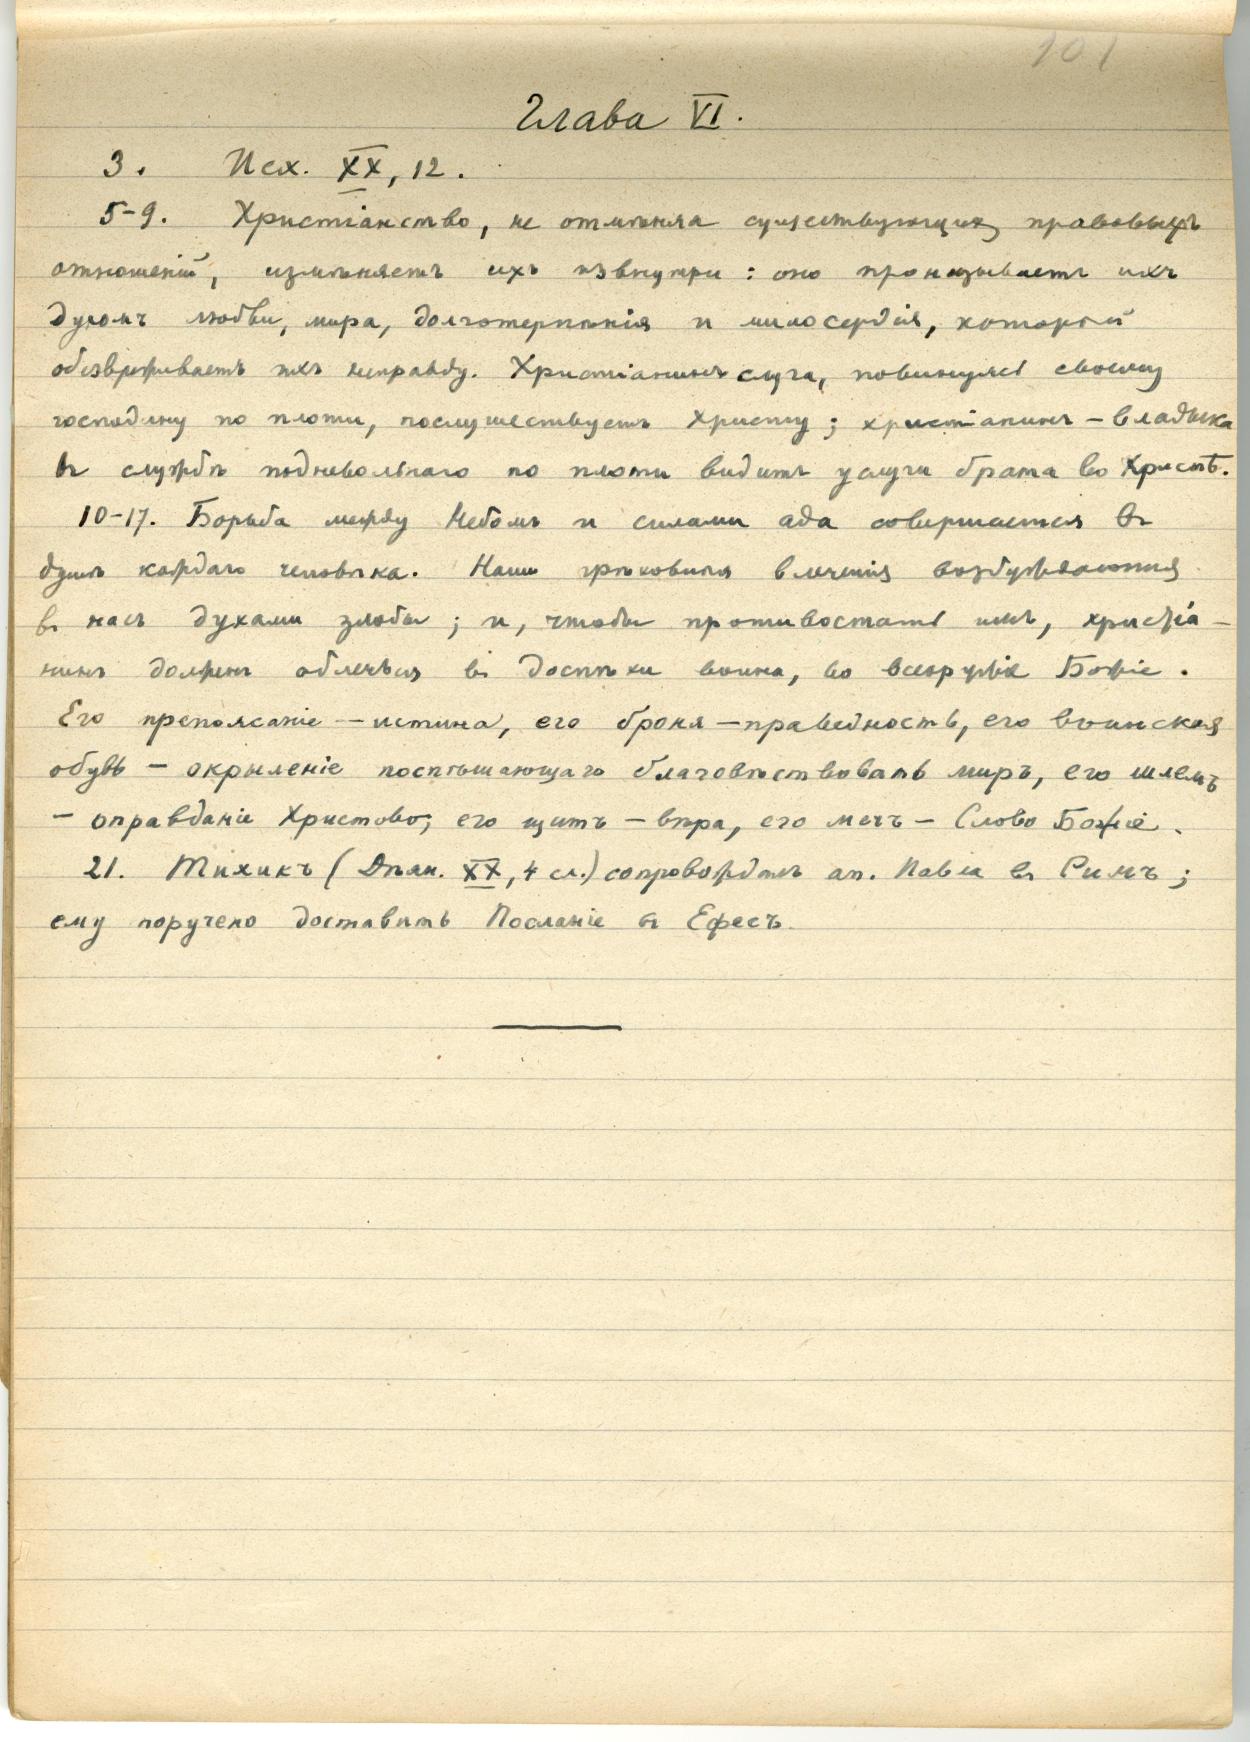 101
Глава VI.
3. Исх. XX, 12.
5-9. Христіанство, не отмѣняя существующихъ правовыхъ
отношеній, измѣняетъ ихъ извнутри: оно пронизываетъ ихъ
духомъ любви, мира, долготерпѣнія и милосердія, который
обезвреживаетъ ихъ неправду. Христіанинъ слуга, повинуясь своему
господину по плоти, послушествуетъ Христу; христіанинъ – владыка
въ службѣ подневольнаго по плоти видитъ услуги брата во Христѣ.
10-17. Борьба между Небомъ и силами ада совершается въ
душѣ каждаго человѣка. Наши грѣховныя влеченія возбуждаются
въ насъ духами злобы; и, чтобы противостать имъ, христіа-
нинъ долженъ облечься въ доспѣхи воина, во всеоружіе Божіе.
Его препоясаніе – истина, его броня – праведность, его воинская
обувь – окрыленіе поспѣшающаго благовѣствовать миръ, его шлемъ
– оправданіе Христово; его щитъ – вѣра, его мечъ – Слово Божіе.
21. Тихикъ (Дѣян. XX, 4 сл.) сопровождалъ ап. Павла въ Римъ;
ему поручено доставить Посланіе въ Ефесъ.